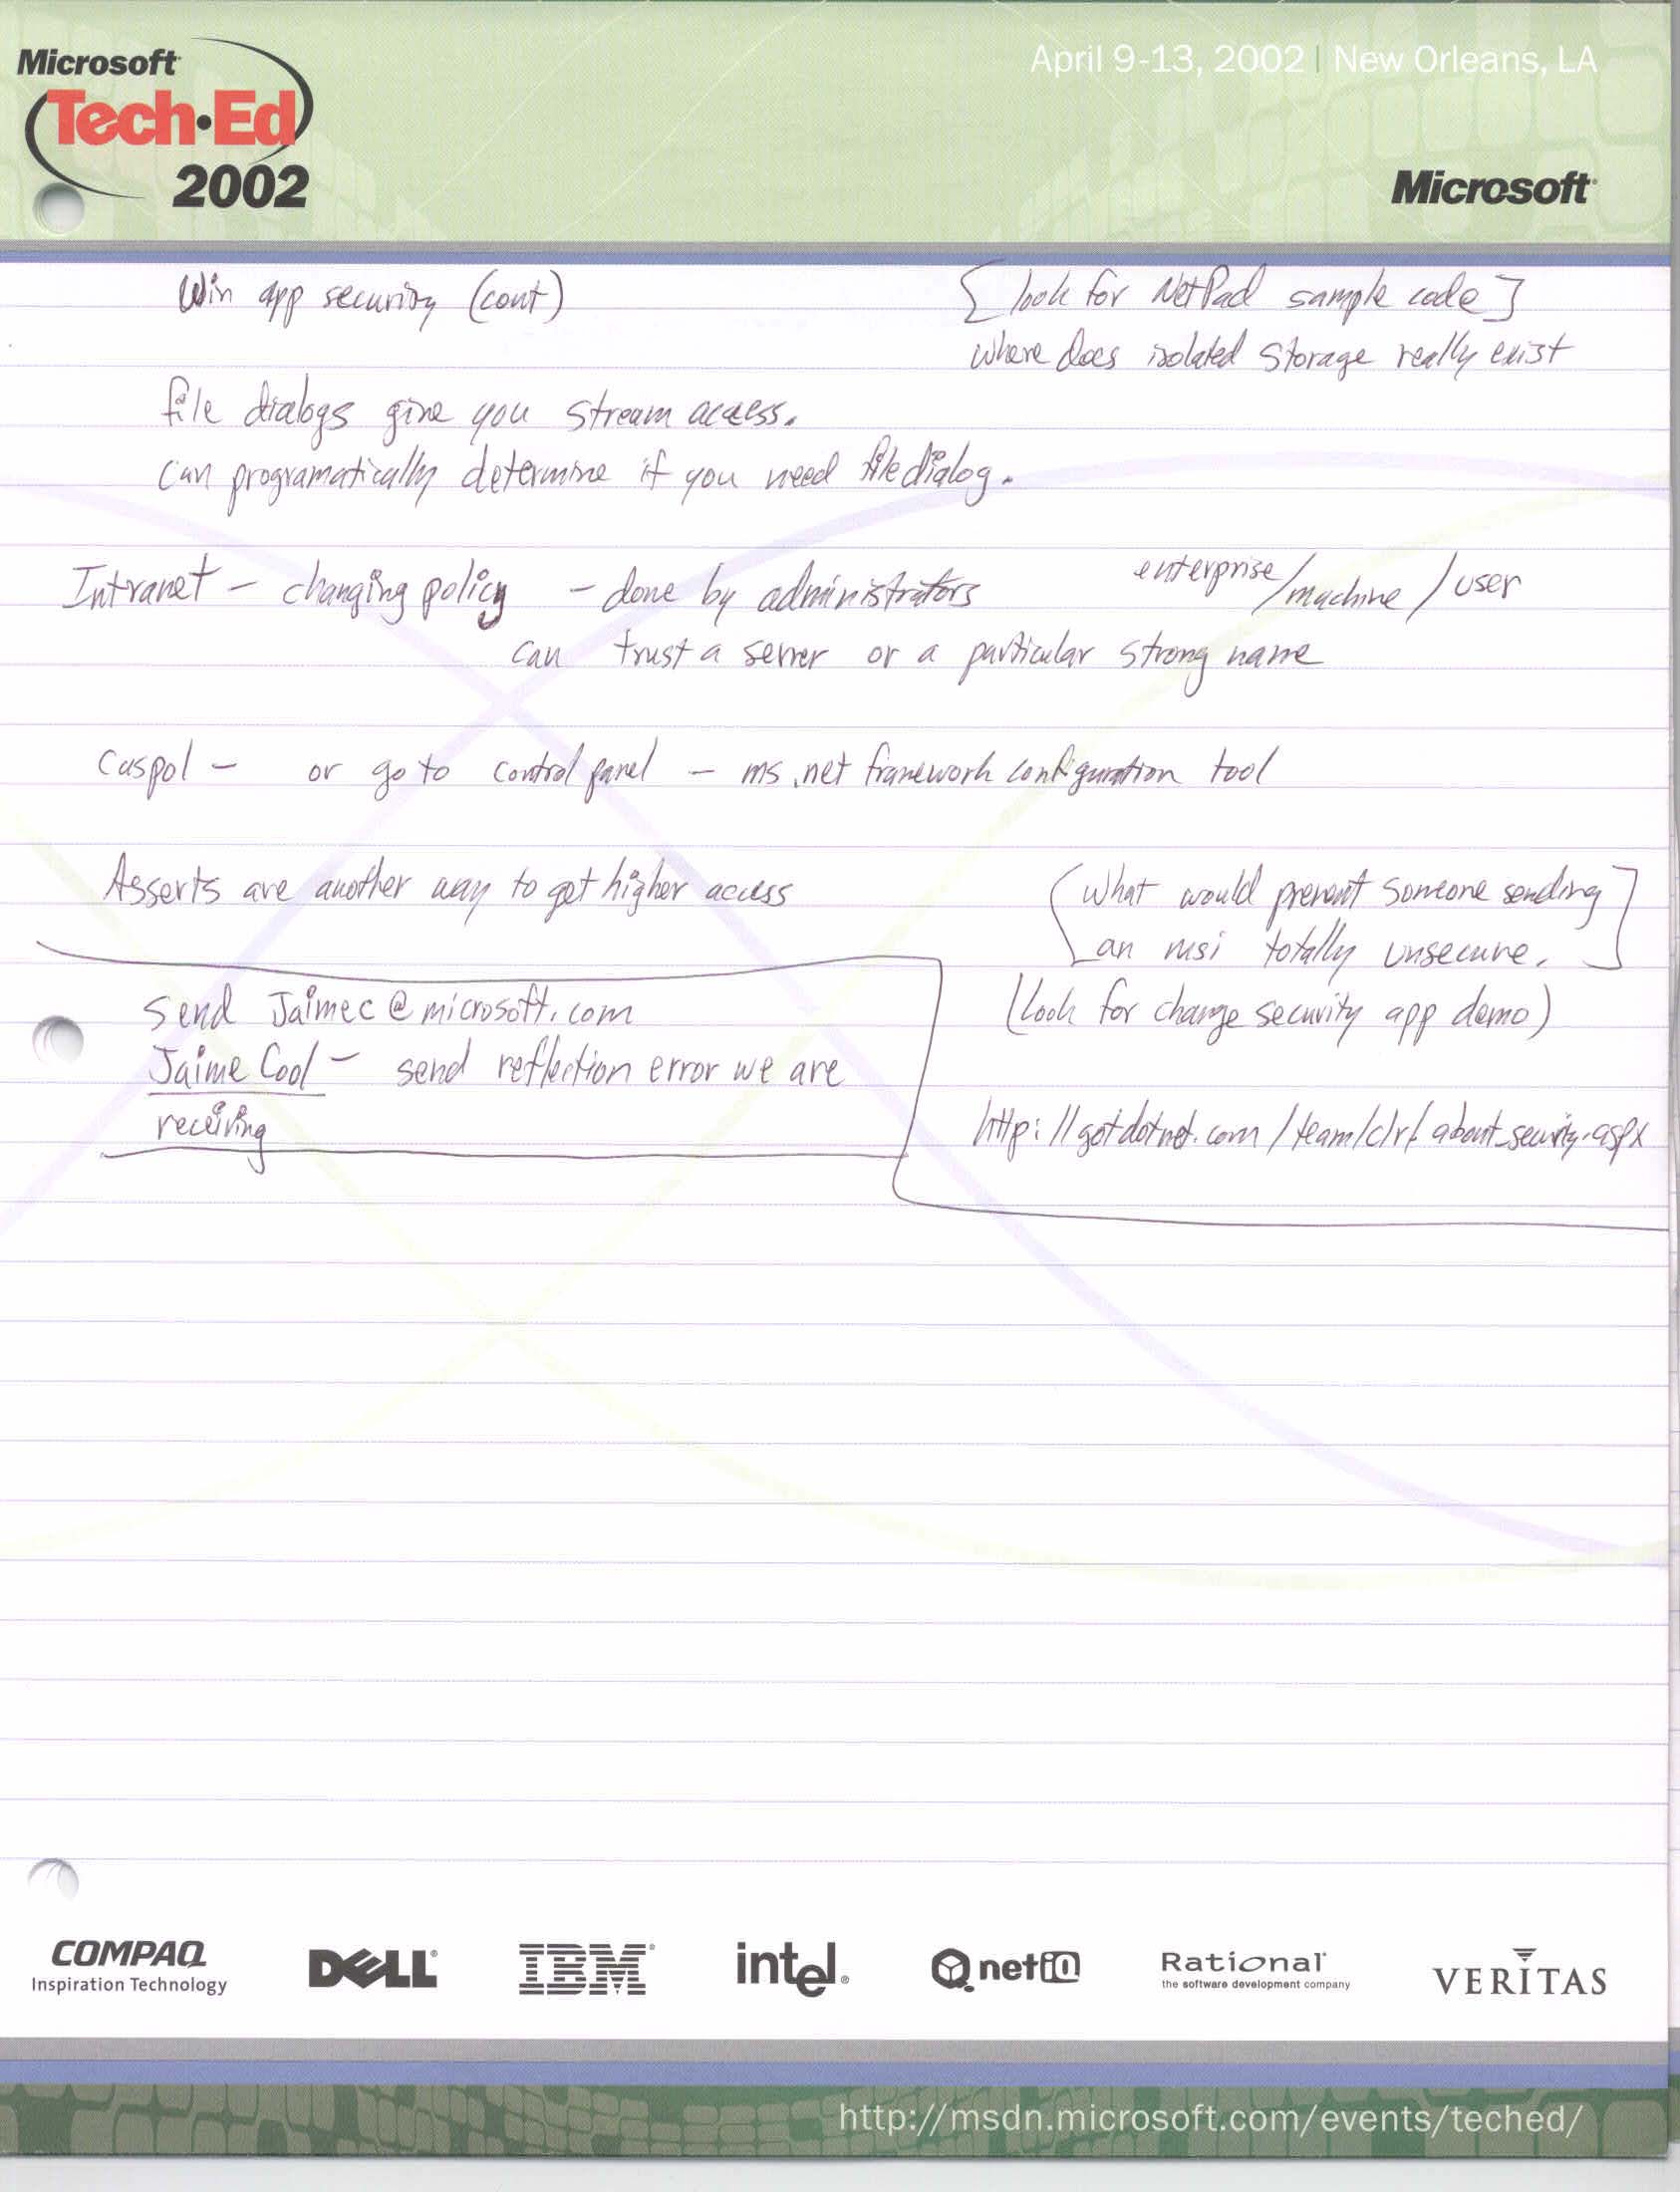 Microsoft
Tech·Ed
2002
April 9-13, 2002 | New Orleans, LA
Microsoft
Win app security (cont)
[look for NetPad sample code]
where does isolated storage really exist
file dialogs give you stream access.
Can programatically determine if you need filedialog.
Intranet - changing policy - done by administrators enterprise/machine/user
can trust a server or a particular strong name
Caspol - or go to control panel - ms .net framework configuration tool
Asserts are another way to get higher access
[What would prevent someone sending
an msi totally unsecure.]
(look for change security app demo)
send Jaimec@microsoft.com
Jaime Cool - send reflection error we are
receiving
http://gotdotnet.com/team/clr/about_security.aspx
COMPAQ
Inspiration Technology
DELL
IBM
intel
netiQ
Rational
the software development company
VERITAS
http://msdn.microsoft.com/events/teched/